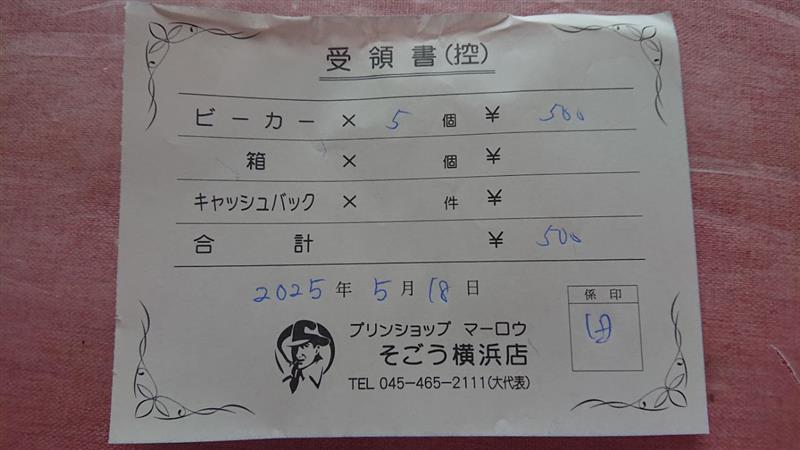 受領書(控)
ビーカー × 5 個 ¥ 500
箱 × 個 ¥
キャッシュバック × 件 ¥
合計 ¥ 500
2025年 5月 18日
係印
プリンショップ マーロウ
そごう横浜店
TEL 045-465-2111(大代表)